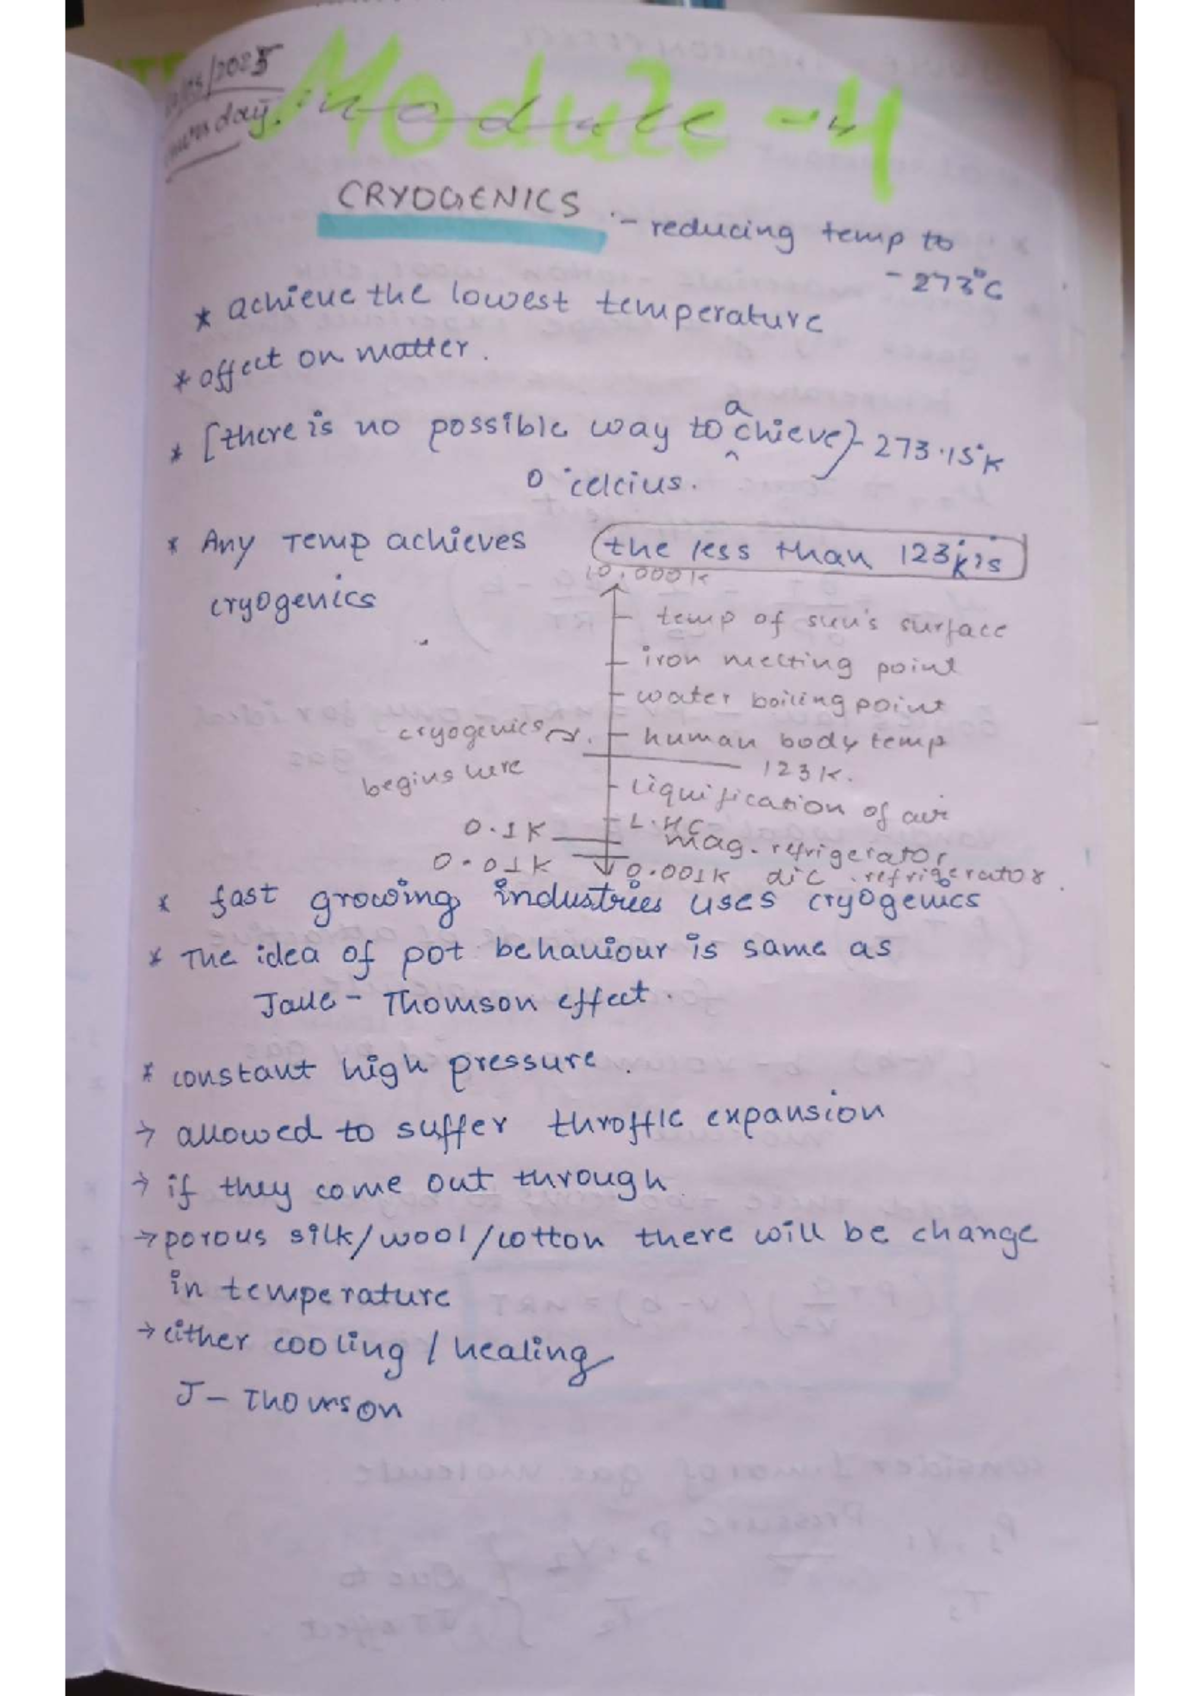 /03/2025
day.
Module-4
CRYOGENICS :- reducing temp to
-273°C
* achieve the lowest temperature
* affect on matter.
* [there is no possible way to achieve]-273.15°K
0 °celcius.
* Any Temp achieves the less than 123k is
cryogenics
10,000K
temp of sun's surface
iron melting point
water boiling point
cryogenics
human body temp
begins here
123K.
liquification of air
L.HC
0.1K
mag. refrigerator
0.01K
0.001K dic refrigerator.
* fast growing industries uses cryogenics
* The idea of pot behaviour is same as
Jaule - Thomson effect.
* constant high pressure.
→ allowed to suffer throttle expansion
→ if they come out through
→ porous silk/wool/cotton there will be change
in temperature
→ either cooling / healing
J - Thomson